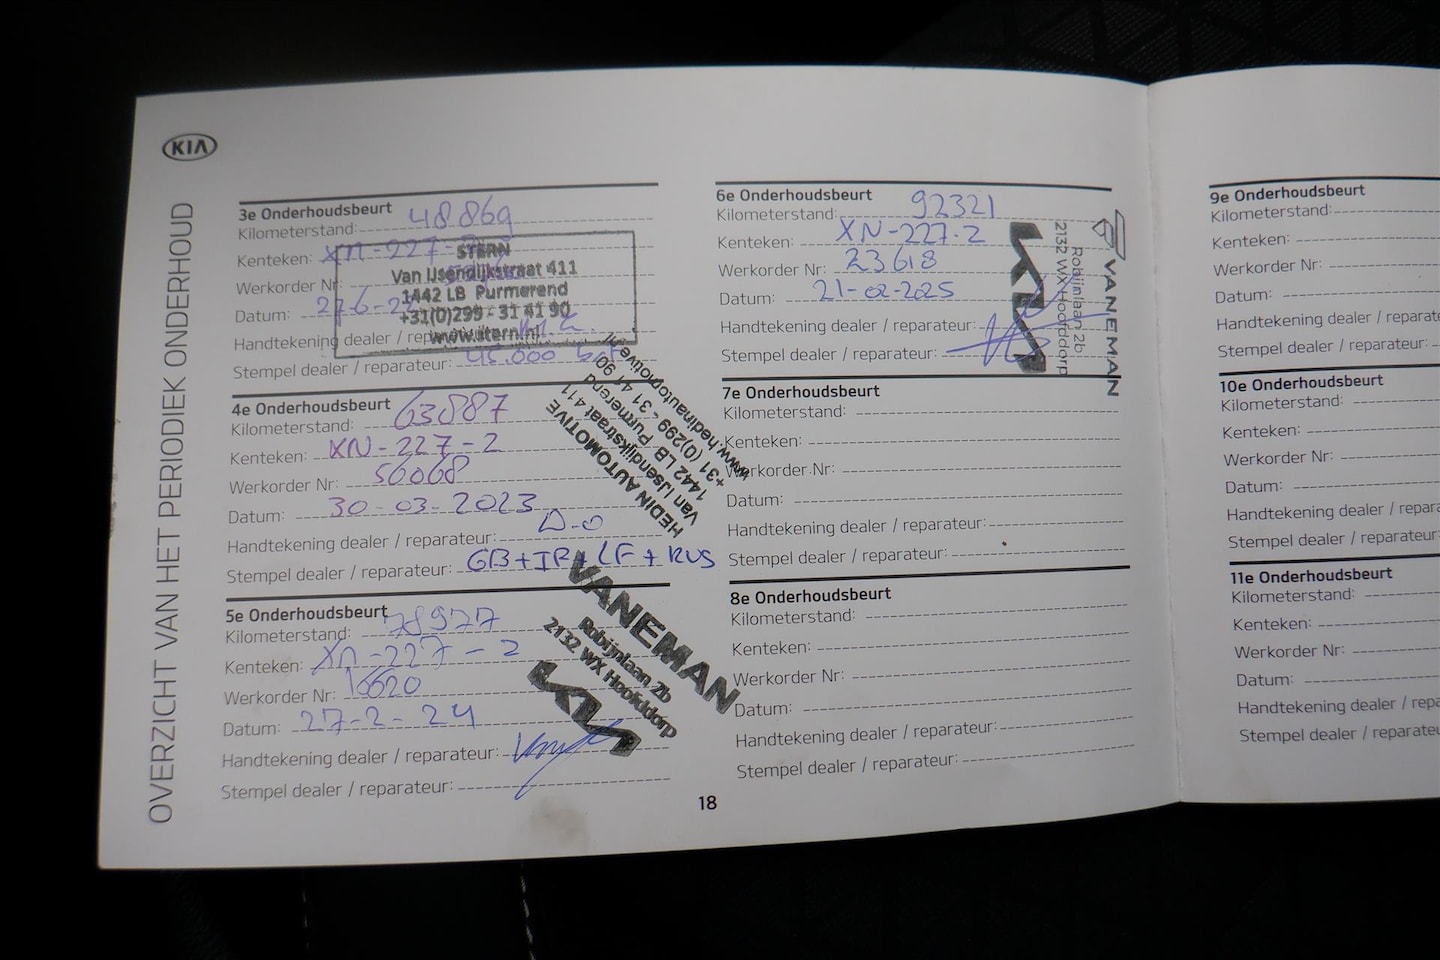 KIA
OVERZICHT VAN HET PERIODIEK ONDERHOUD
3e Onderhoudsbeurt
Kilometerstand: 48869
Kenteken: XN-227-
Werkorder Nr:
Datum: 27-6-
Handtekening dealer / reparateur:
Stempel dealer / reparateur: 45.000
STERN
Van IJsendijkstraat 411
1442 LB Purmerend
+31(0)299 - 31 41 90
www.stern.nl
4e Onderhoudsbeurt
Kilometerstand: 63887
Kenteken: XN-227-2
Werkorder Nr: 56068
Datum: 30-03-2023
Handtekening dealer / reparateur:
Stempel dealer / reparateur: GB+IF+LF+RUS
HEDIN AUTOMOTIVE
Van IJsendijkstraat 411
1442 LB Purmerend
+31 (0)299 - 31 41 90
www.hedinautomotive.nl
5e Onderhoudsbeurt
Kilometerstand: 78977
Kenteken: XN-227-2
Werkorder Nr: 16620
Datum: 27-2-24
Handtekening dealer / reparateur:
Stempel dealer / reparateur:
VANEMAN
Robijnlaan 2b
2132 WX Hoofddorp
KIA
6e Onderhoudsbeurt
Kilometerstand: 92321
Kenteken: XN-227-2
Werkorder Nr: 23618
Datum: 21-02-2025
Handtekening dealer / reparateur:
Stempel dealer / reparateur:
VANEMAN
Robijnlaan 2b
2132 WX Hoofddorp
KIA
7e Onderhoudsbeurt
Kilometerstand:
Kenteken:
Werkorder Nr:
Datum:
Handtekening dealer / reparateur:
Stempel dealer / reparateur:
8e Onderhoudsbeurt
Kilometerstand:
Kenteken:
Werkorder Nr:
Datum:
Handtekening dealer / reparateur:
Stempel dealer / reparateur:
18
9e Onderhoudsbeurt
Kilometerstand:
Kenteken:
Werkorder Nr:
Datum:
Handtekening dealer / reparate
Stempel dealer / reparateur:
10e Onderhoudsbeurt
Kilometerstand:
Kenteken:
Werkorder Nr:
Datum:
Handtekening dealer / repara
Stempel dealer / reparateur:
11e Onderhoudsbeurt
Kilometerstand:
Kenteken:
Werkorder Nr:
Datum:
Handtekening dealer / repa
Stempel dealer / reparateu